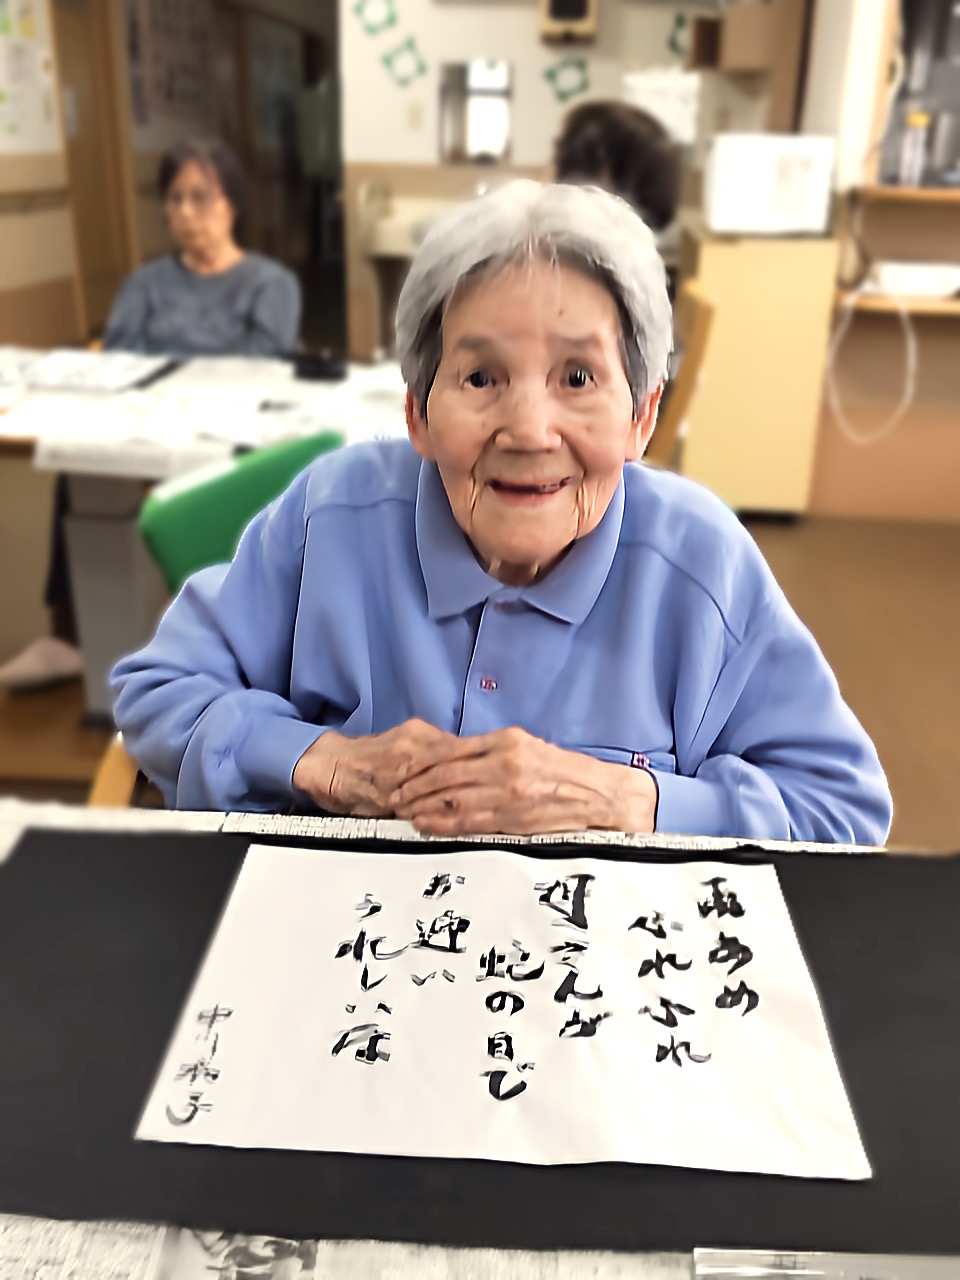 雨あめ
ふれふれ
母さんが
蛇の目で
お迎い
うれしいな
中川和子